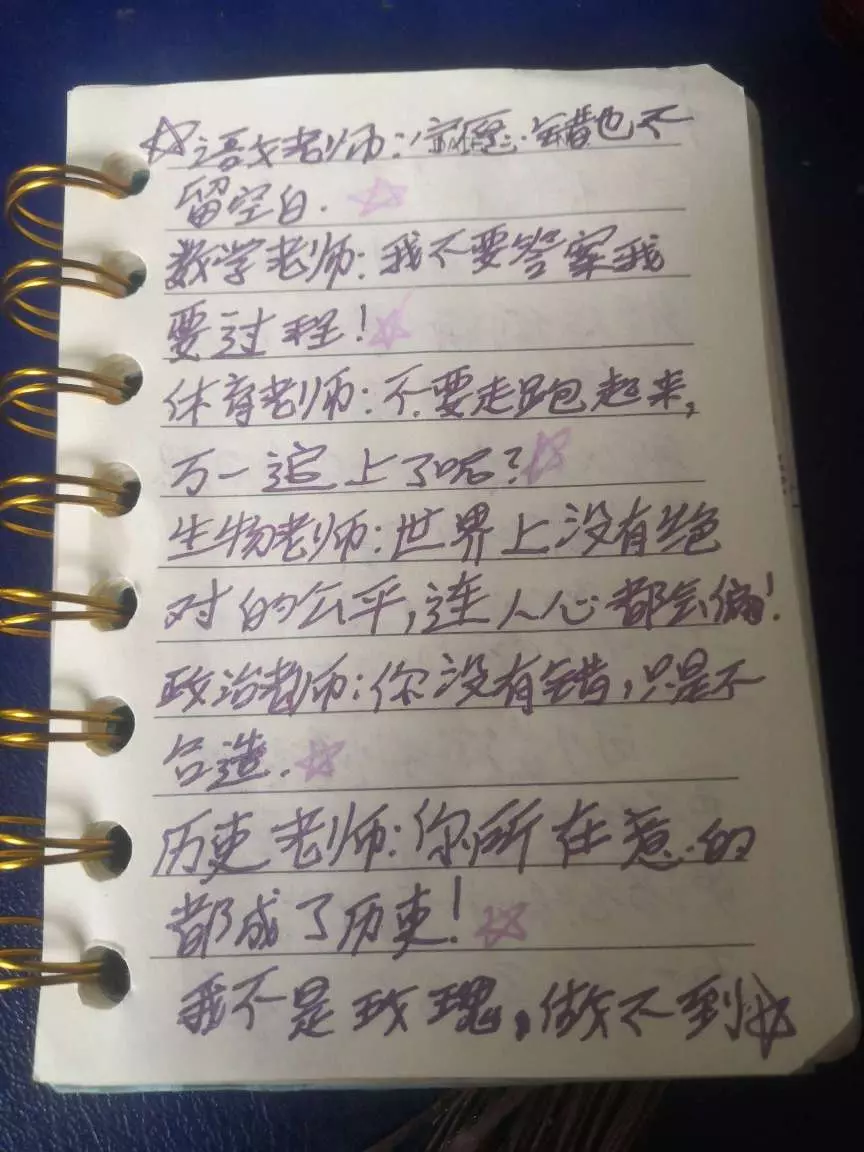 语文老师:宁愿错也不
留空白.
数学老师:我不要答案我
要过程!
体育老师:不要走跑起来,
万一追上了呢?
生物老师:世界上没有绝
对的公平,连人心都会偏!
政治老师:你没有错,只是不
合适.
历史老师:你所在意的
都成了历史!
我不是玫瑰,做不到